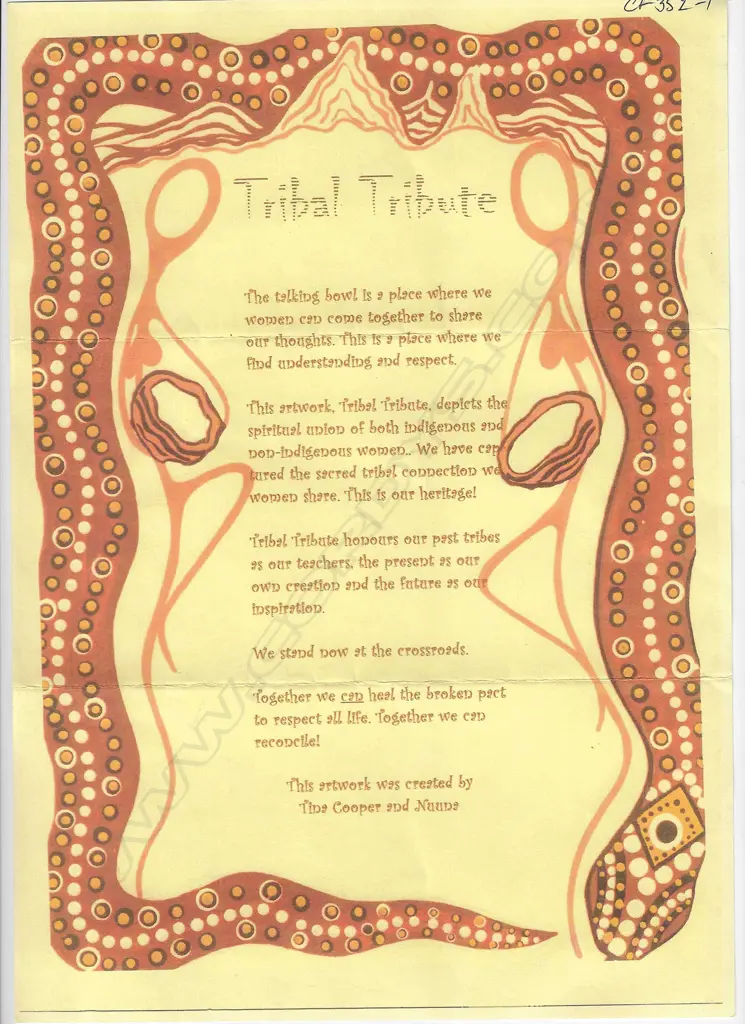 CF352-1
Tribal Tribute
The talking bowl is a place where we
women can come together to share
our thoughts. This is a place where we
find understanding and respect.
This artwork, Tribal Tribute, depicts the
spiritual union of both indigenous and
non-indigenous women.. We have cap
tured the sacred tribal connection we
women share. This is our heritage!
Tribal Tribute honours our past tribes
as our teachers, the present as our
own creation and the future as our
inspiration.
We stand now at the crossroads.
Together we can heal the broken pact
to respect all life. Together we can
reconcile!
This artwork was created by
Tina Cooper and Nuuna